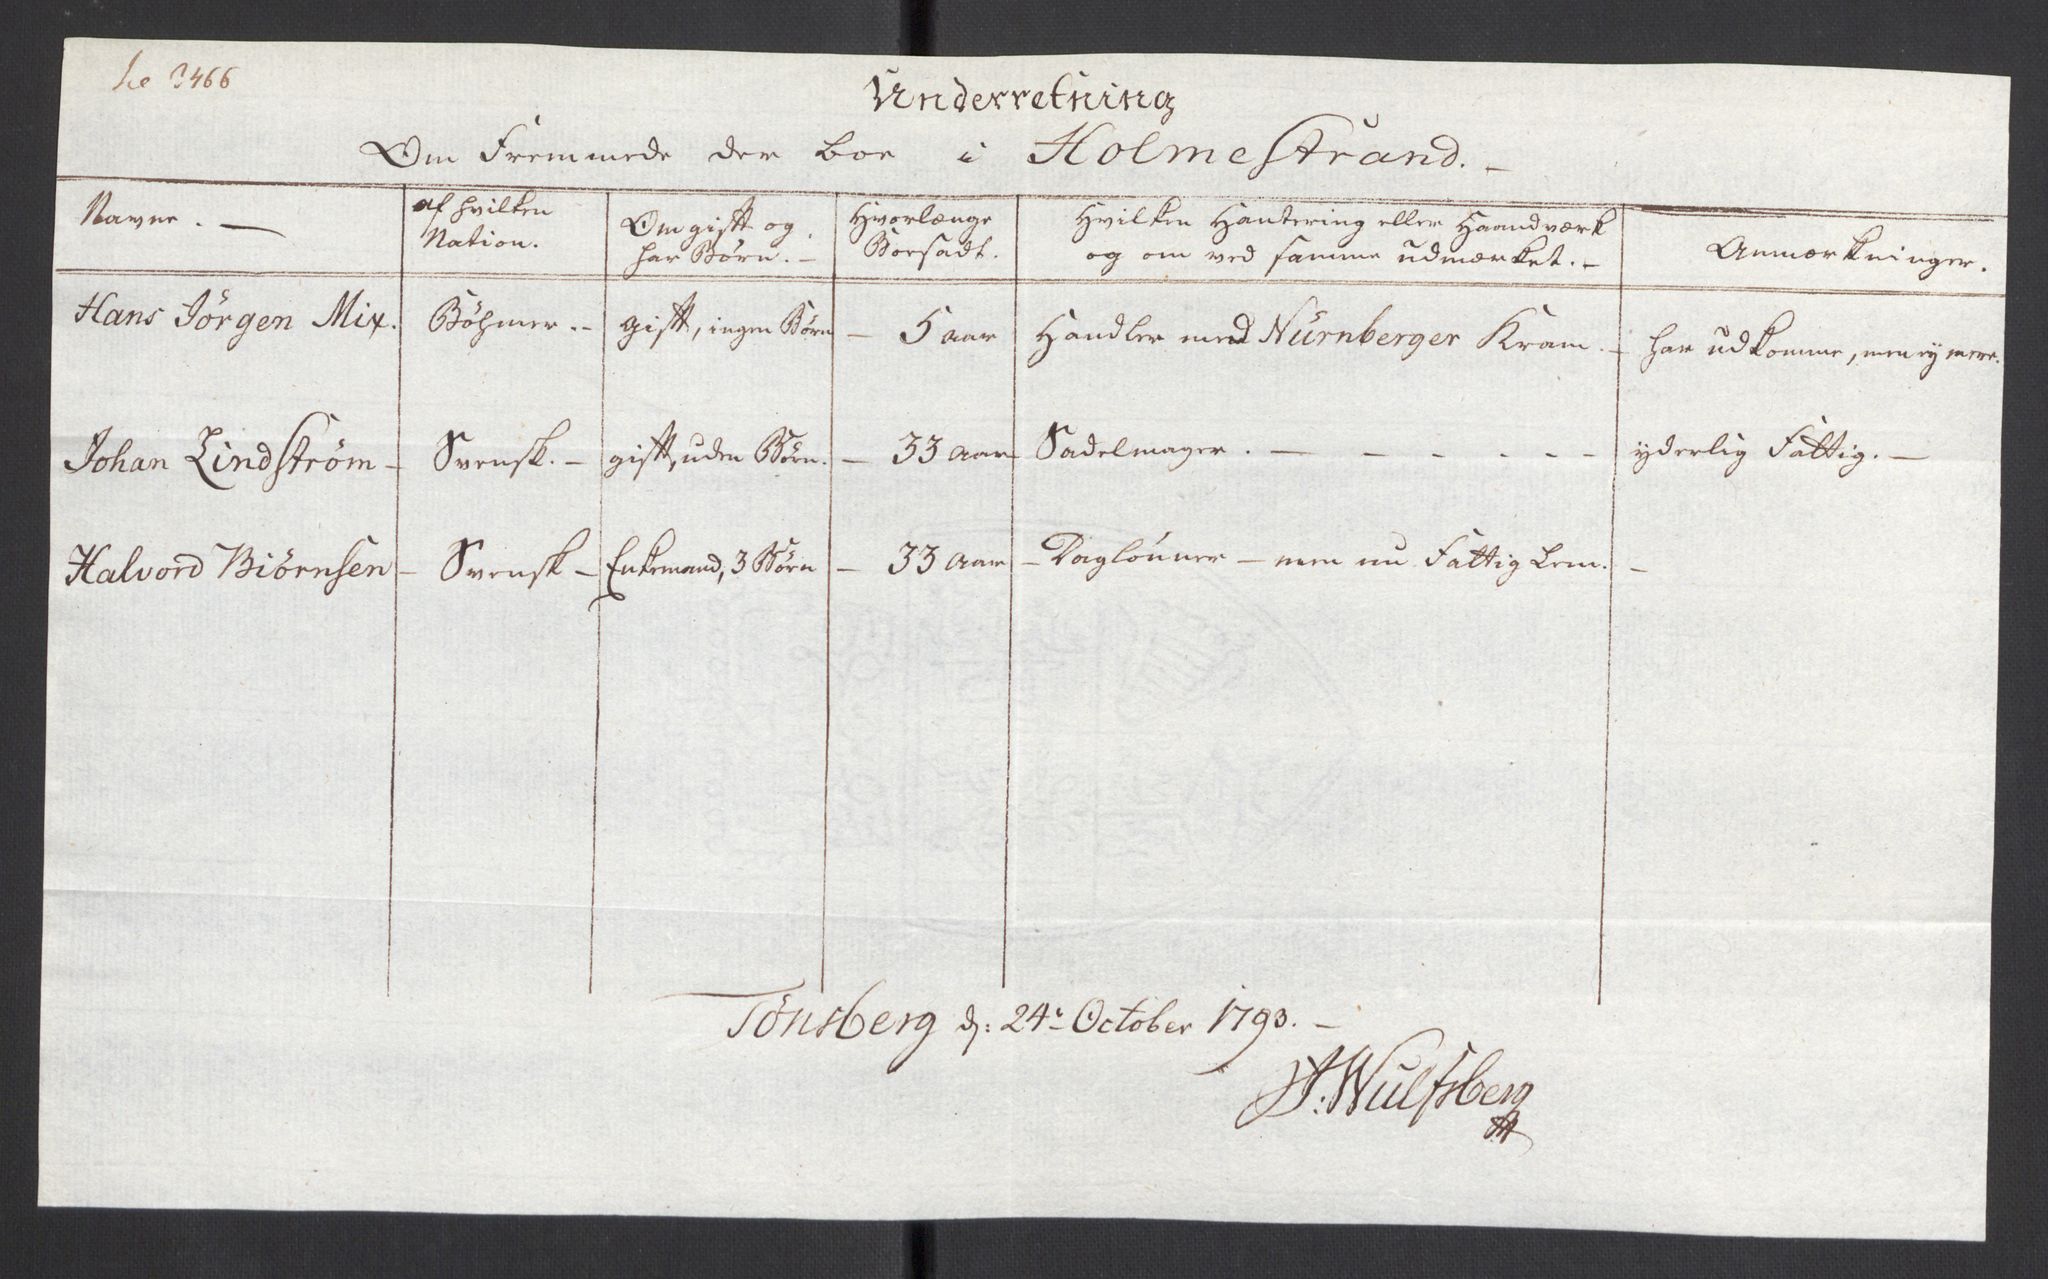 3466
Underretning
Om Fremmede der boe i Holmestrand. -
Navne. - af hvilken Nation. Om gift og har Børn. - Hvorlænge Boesadt. Hvilken Hantering eller Haandværk og om ved samme udmærket. - Anmærkninger.
Hans Jörgen Mix. Böhmer. - gift, ingen Børn - 5 aar Handler med Nürnberger Kram. - har udkomme, men ey mere.
Johan Lindström - Svensk. - gift, uden Børn. - 33 aar Sadelmager. - - - - - - - yderlig Fattig. -
Halvord Biörnsen - Svensk - Enkemand, 3 Børn - 33 aar - Daglönner - men nu Fattig Lem. -
Tönsberg d: 24de October 1793. -
Wulfsberg